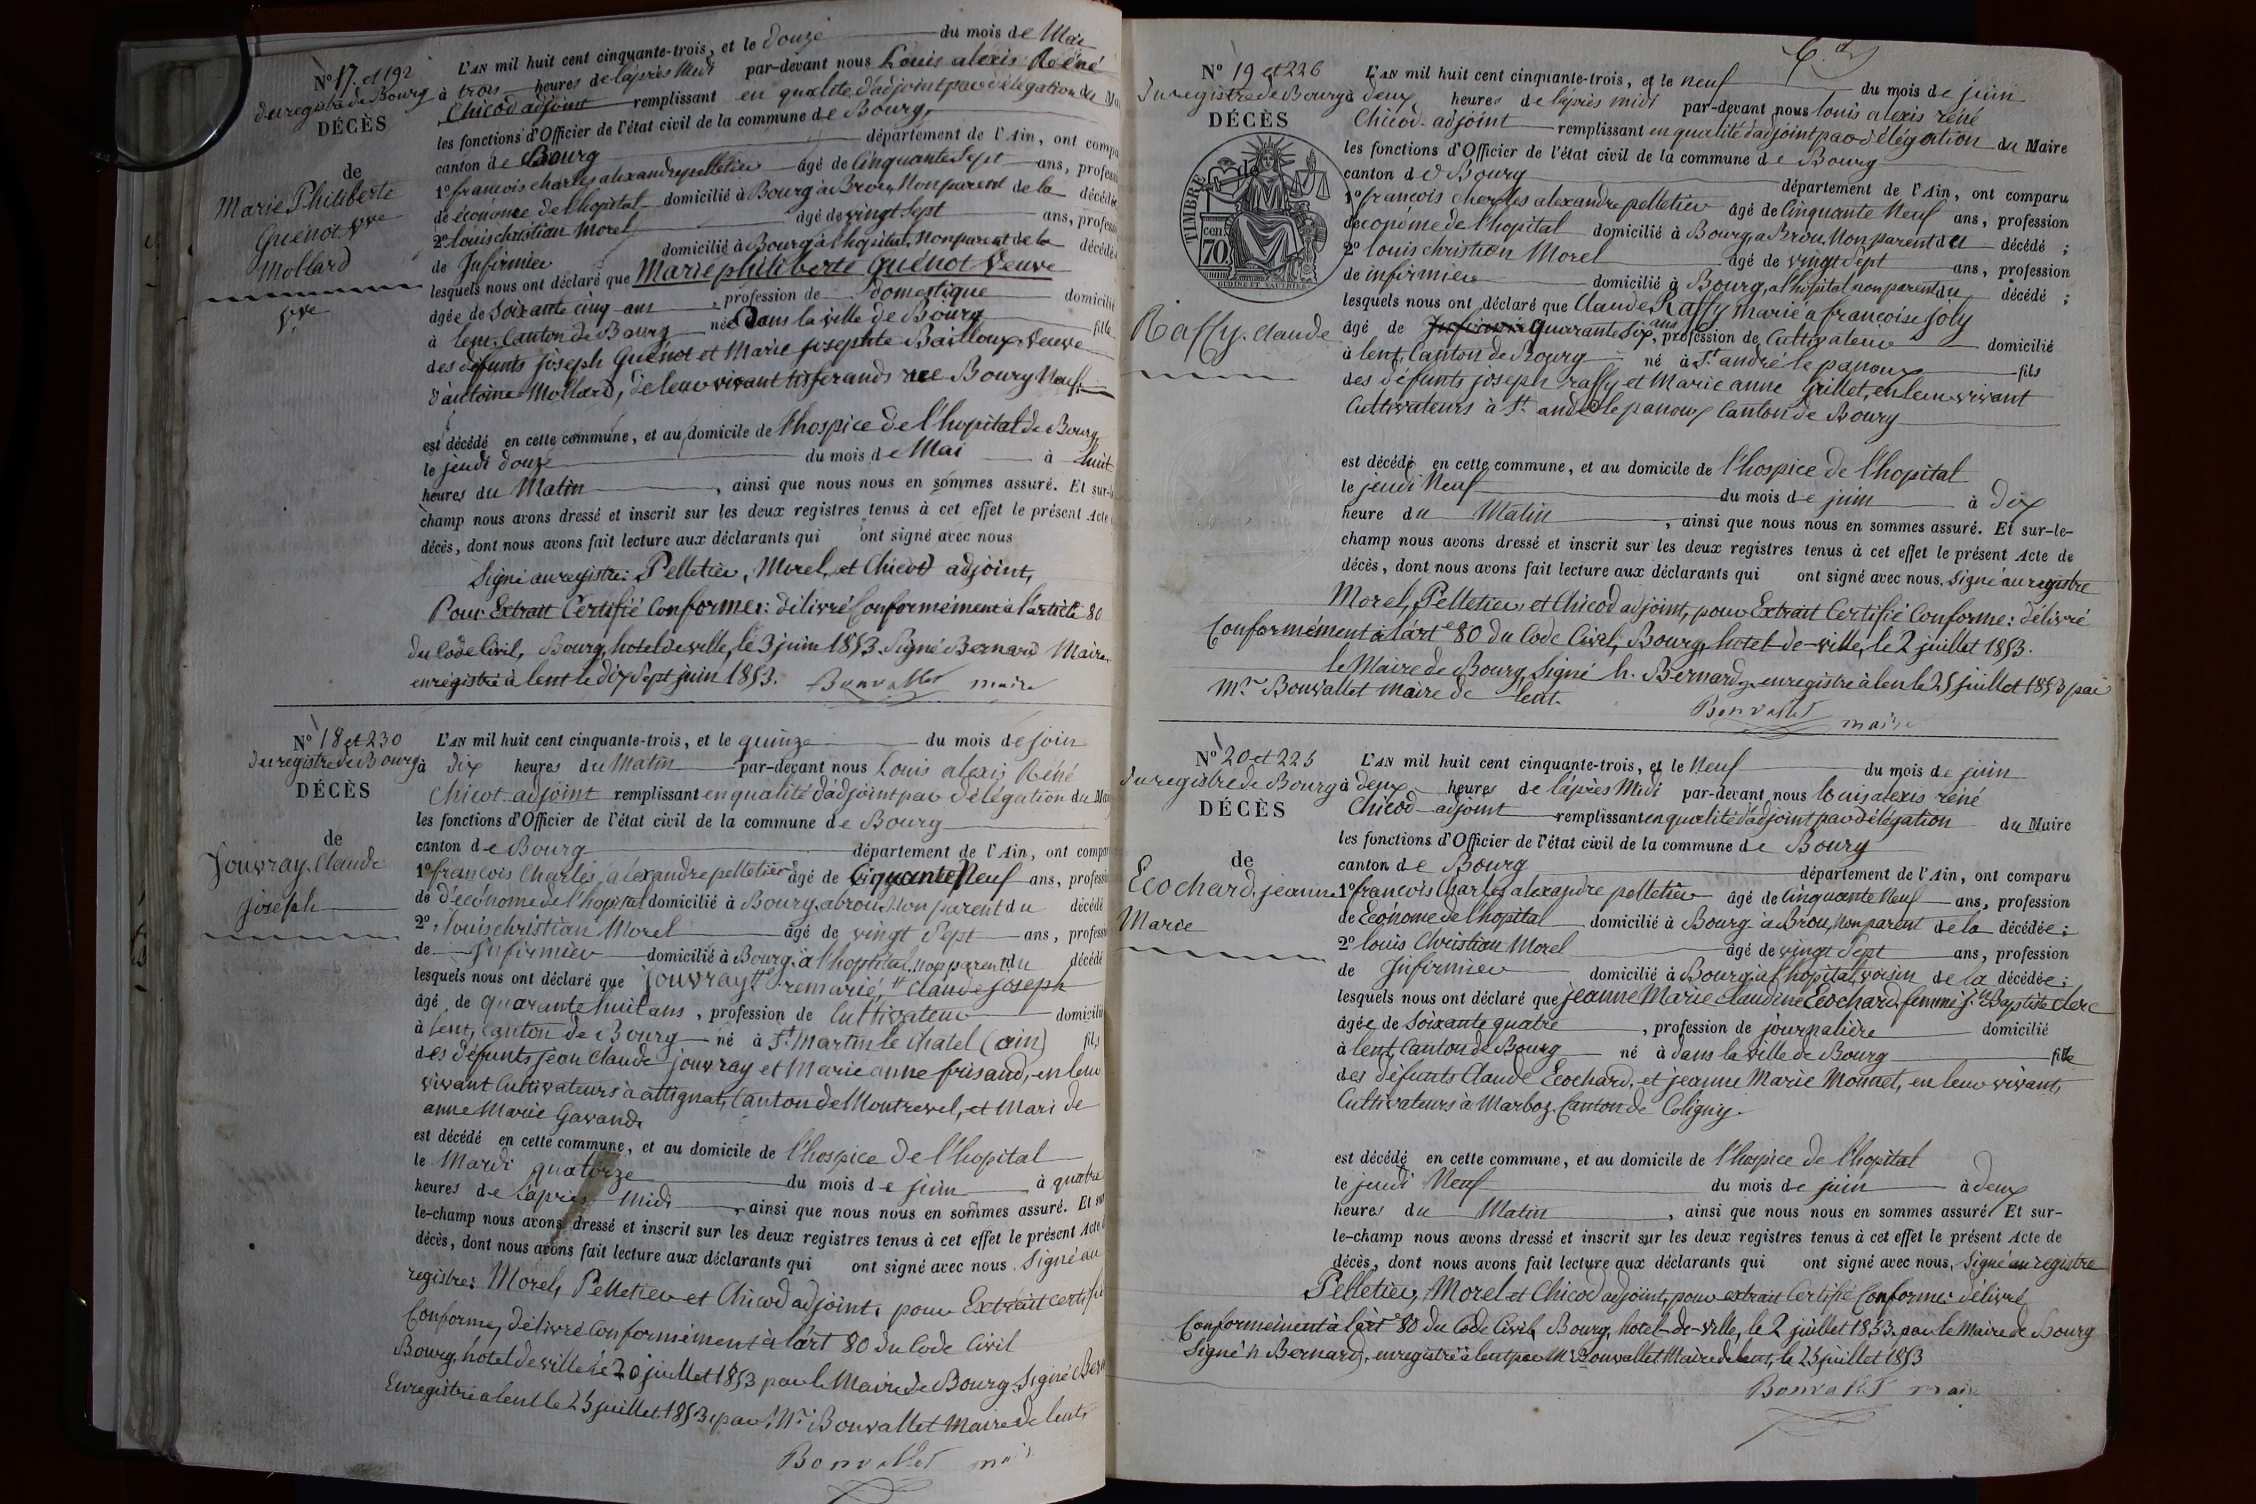 N° 17. et 192
du registre de Bourg
DÉCÈS
de
Marie Philiberte
Guénot vve
Mollard
vve
L'AN mil huit cent cinquante-trois, et le douze du mois de Mai
à trois heures de l'après Midi par-devant nous Louis alexis Réné
Chicod adjoint remplissant en qualité d'adjoint par délégation du Mai
les fonctions d'Officier de l'état civil de la commune de Bourg,
canton de Bourg département de l'Ain, ont compa
1° francois charles alexandre pelletier âgé de Cinquante Sept ans, profess
de économe de l'hopital domicilié à Bourg à Brou, Non parent de la décédé
2° louis christian Morel âgé de vingt Sept ans, profess
de Infirmier domicilié à Bourg à l'hopital, Non parent de la décédé
lesquels nous ont déclaré que Marie philiberte Guénot Veuve
âgée de Soixante cinq ans, profession de domestique domicilié
à lent, Canton de Bourg née Dans la ville de Bourg fille
des défunts joseph Guénot et Marie josephte Bailloux, Veuve
d'antoine Mollard, de leur vivant tisserands rue Bourg Neuf,
est décédé en cette commune, et au domicile de l'hospice de l'hopital de Bourg
le jeudi douze du mois de Mai à huit
heures du Matin, ainsi que nous nous en sommes assuré. Et sur-l
champ nous avons dressé et inscrit sur les deux registres tenus à cet effet le présent Acte
décès, dont nous avons fait lecture aux déclarants qui ont signé avec nous
Signé au registre: Pelletier, Morel, et Chicod adjoint,
Pour Extrait Certifié Conforme: délivré Conformément à l'article 80
du Code Civil, Bourg, hotel de ville, le 3 juin 1853. Signé Bernard Maire,
enregistré à lent le dix Sept juin 1853. Bonvallet maire
N° 18 et 230
du registre de Bourg
DÉCÈS
de
Jouvray. Claude
joseph
L'AN mil huit cent cinquante-trois, et le quinze du mois de join
à dix heures du Matin par-devant nous Louis alexis Réné
Chicot adjoint remplissant en qualité d'adjoint par délégation du Mai
les fonctions d'Officier de l'état civil de la commune de Bourg
canton de Bourg département de l'Ain, ont compar
1° francois Charles alexandre pelletier âgé de Cinquante Neuf ans, professi
de d'économe de l'hopital domicilié à Bourg, a brou, Non parent du décédé
2° louis christian Morel âgé de vingt Sept ans, profess
de Infirmier domicilié à Bourg à l'hopital, non parent du décédé
lesquels nous ont déclaré que Jouvray remarié, Claude joseph
âgé de quarante huit ans, profession de Cultivateur domicilié
à lent, Canton de Bourg né à St Martin le Chatel (ain) fils
des défunts jean Claude jouvray et Marie anne frisaud, en leur
vivant Cultivateurs à attignat, Canton de Montrevel, et Mari de
anne Marie Gavand.
est décédé en cette commune, et au domicile de l'hospice de l'hopital
le Mardi quatorze du mois de juin à quatre
heures de l'après Midi, ainsi que nous nous en sommes assuré. Et sur
le-champ nous avons dressé et inscrit sur les deux registres tenus à cet effet le présent Acte
décès, dont nous avons fait lecture aux déclarants qui ont signé avec nous. Signé au
registre: Morel, Pelletier et Chicod adjoint, pour Extrait certifié
Conforme, délivré Conformément à l'art 80 du Code Civil
Bourg, hotel de ville le 20 juillet 1853 par le Maire de Bourg Signé Bern
Enregistré a lent le 25 juillet 1853 par Mr Bonvallet Maire de lent
Bonvallet
N° 19 et 226
du registre de Bourg
DÉCÈS
TIMBRE
70 cen
Raffy. Claude
L'AN mil huit cent cinquante-trois, et le Neuf du mois de juin
à deux heures de l'après midi par-devant nous louis alexis réné
Chicod adjoint remplissant en qualité d'adjoint par délégation du Maire
les fonctions d'Officier de l'état civil de la commune de Bourg
canton de Bourg département de l'Ain, ont comparu
1° francois charles alexandre pelletier âgé de Cinquante Neuf ans, profession
d'économe de l'hopital domicilié à Bourg, a Brou, Non parent du décédé ;
2° louis christian Morel âgé de vingt Sept ans, profession
de infirmier domicilié à Bourg, a l'hopital non parent du décédé ;
lesquels nous ont déclaré que Claude Raffy marié a francoise joly
âgé de quarante Six ans, profession de Cultivateur domicilié
à lent, Canton de Bourg né à St andré le panoux fils
des défunts joseph raffy et Marie anne Grillet, en leur vivant
Cultivateurs à St andré le panoux Canton de Bourg
est décédé en cette commune, et au domicile de l'hospice de l'hopital
le jeudi Neuf du mois de juin à dix
heure du Matin, ainsi que nous nous en sommes assuré. Et sur-le-
champ nous avons dressé et inscrit sur les deux registres tenus à cet effet le présent Acte de
décès, dont nous avons fait lecture aux déclarants qui ont signé avec nous. Signé au registre
Morel, Pelletier, et Chicod adjoint, pour Extrait Certifié Conforme: délivré
Conformément à l'arte 80 du Code Civil, Bourg, hotel-de-ville, le 2 juillet 1853.
le Maire de Bourg, Signé h. Bernard, enregistré à lent le 25 juillet 1853 par
Mr Bonvallet Maire de lent.
Bonvallet maire
N° 20 et 225
du registre de Bourg
DÉCÈS
de
Ecochard, jeanne
Marie
L'AN mil huit cent cinquante-trois, et le Neuf du mois de juin
à deux heures de l'après Midi par-devant nous louis alexis réné
Chicod adjoint remplissant en qualité d'adjoint par délégation du Maire
les fonctions d'Officier de l'état civil de la commune de Bourg
canton de Bourg département de l'Ain, ont comparu
1° francois Charles alexandre pelletier âgé de Cinquante Neuf ans, profession
de Econome de l'hopital domicilié à Bourg à Brou, Non parent de la décédée ;
2° louis Christian Morel âgé de vingt Sept ans, profession
de Infirmier domicilié à Bourg, à l'hopital, voisin de la décédée ;
lesquels nous ont déclaré que jeanne Marie claudine Ecochard, femme j. Baptiste Clerc
âgée de Soixante quatre, profession de journalière domicilié
à lent, Canton de Bourg né à dans la ville de Bourg fille
des défunts Claude Ecochard, et jeanne Marie Monnet, en leur vivant,
Cultivateurs à Marboz, Canton de Coligny.
est décédé en cette commune, et au domicile de l'hospice de l'hopital
le jeudi Neuf du mois de juin à deux
heures du Matin, ainsi que nous nous en sommes assuré Et sur-
le-champ nous avons dressé et inscrit sur les deux registres tenus à cet effet le présent Acte de
décès, dont nous avons fait lecture aux déclarants qui ont signé avec nous, Signé au registre
Pelletier, Morel et Chicod adjoint, pour extrait Certifié Conforme: délivré
Conformément à l'art 80 du Code Civil, Bourg, hotel-de-ville, le 2 juillet 1853. par le Maire de Bourg
Signé h Bernard, enregistré à lent par Mr Bonvallet Maire de lent, le 25 juillet 1853
Bonvallet maire